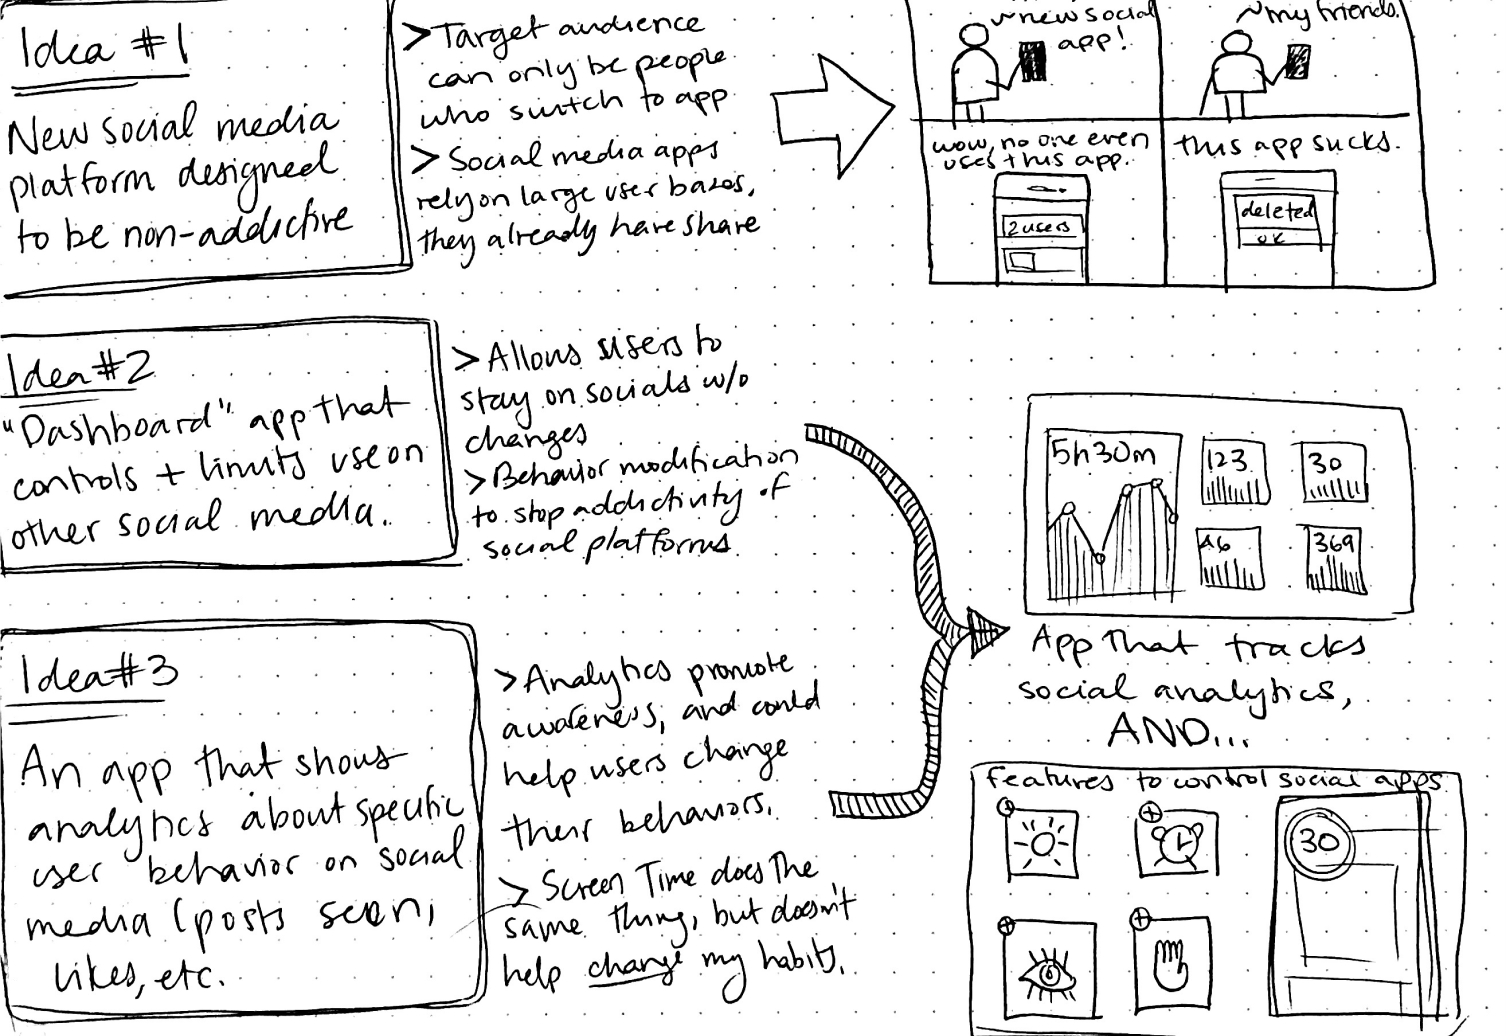 Idea #1
New social media
platform designed
to be non-addictive
> Target audience
can only be people
who switch to app
> Social media apps
rely on large user bases,
they already have share
~new social
app!
~my friends.
wow, no one even
uses this app.
this app sucks.
2 users
deleted
ok
Idea #2
"Dashboard" app that
controls + limits use on
other social media.
> Allows users to
stay on socials w/o
changes
> Behavior modification
to stop addictivity of
social platforms
Idea #3
An app that shows
analytics about specific
user behavior on social
media (posts seen,
likes, etc.
> Analytics promote
awareness, and could
help users change
their behaviors.
> Screen Time does the
same thing, but doesn't
help change my habits.
5h30m
123
30
46
369
App that tracks
social analytics,
AND...
features to control social apps
30